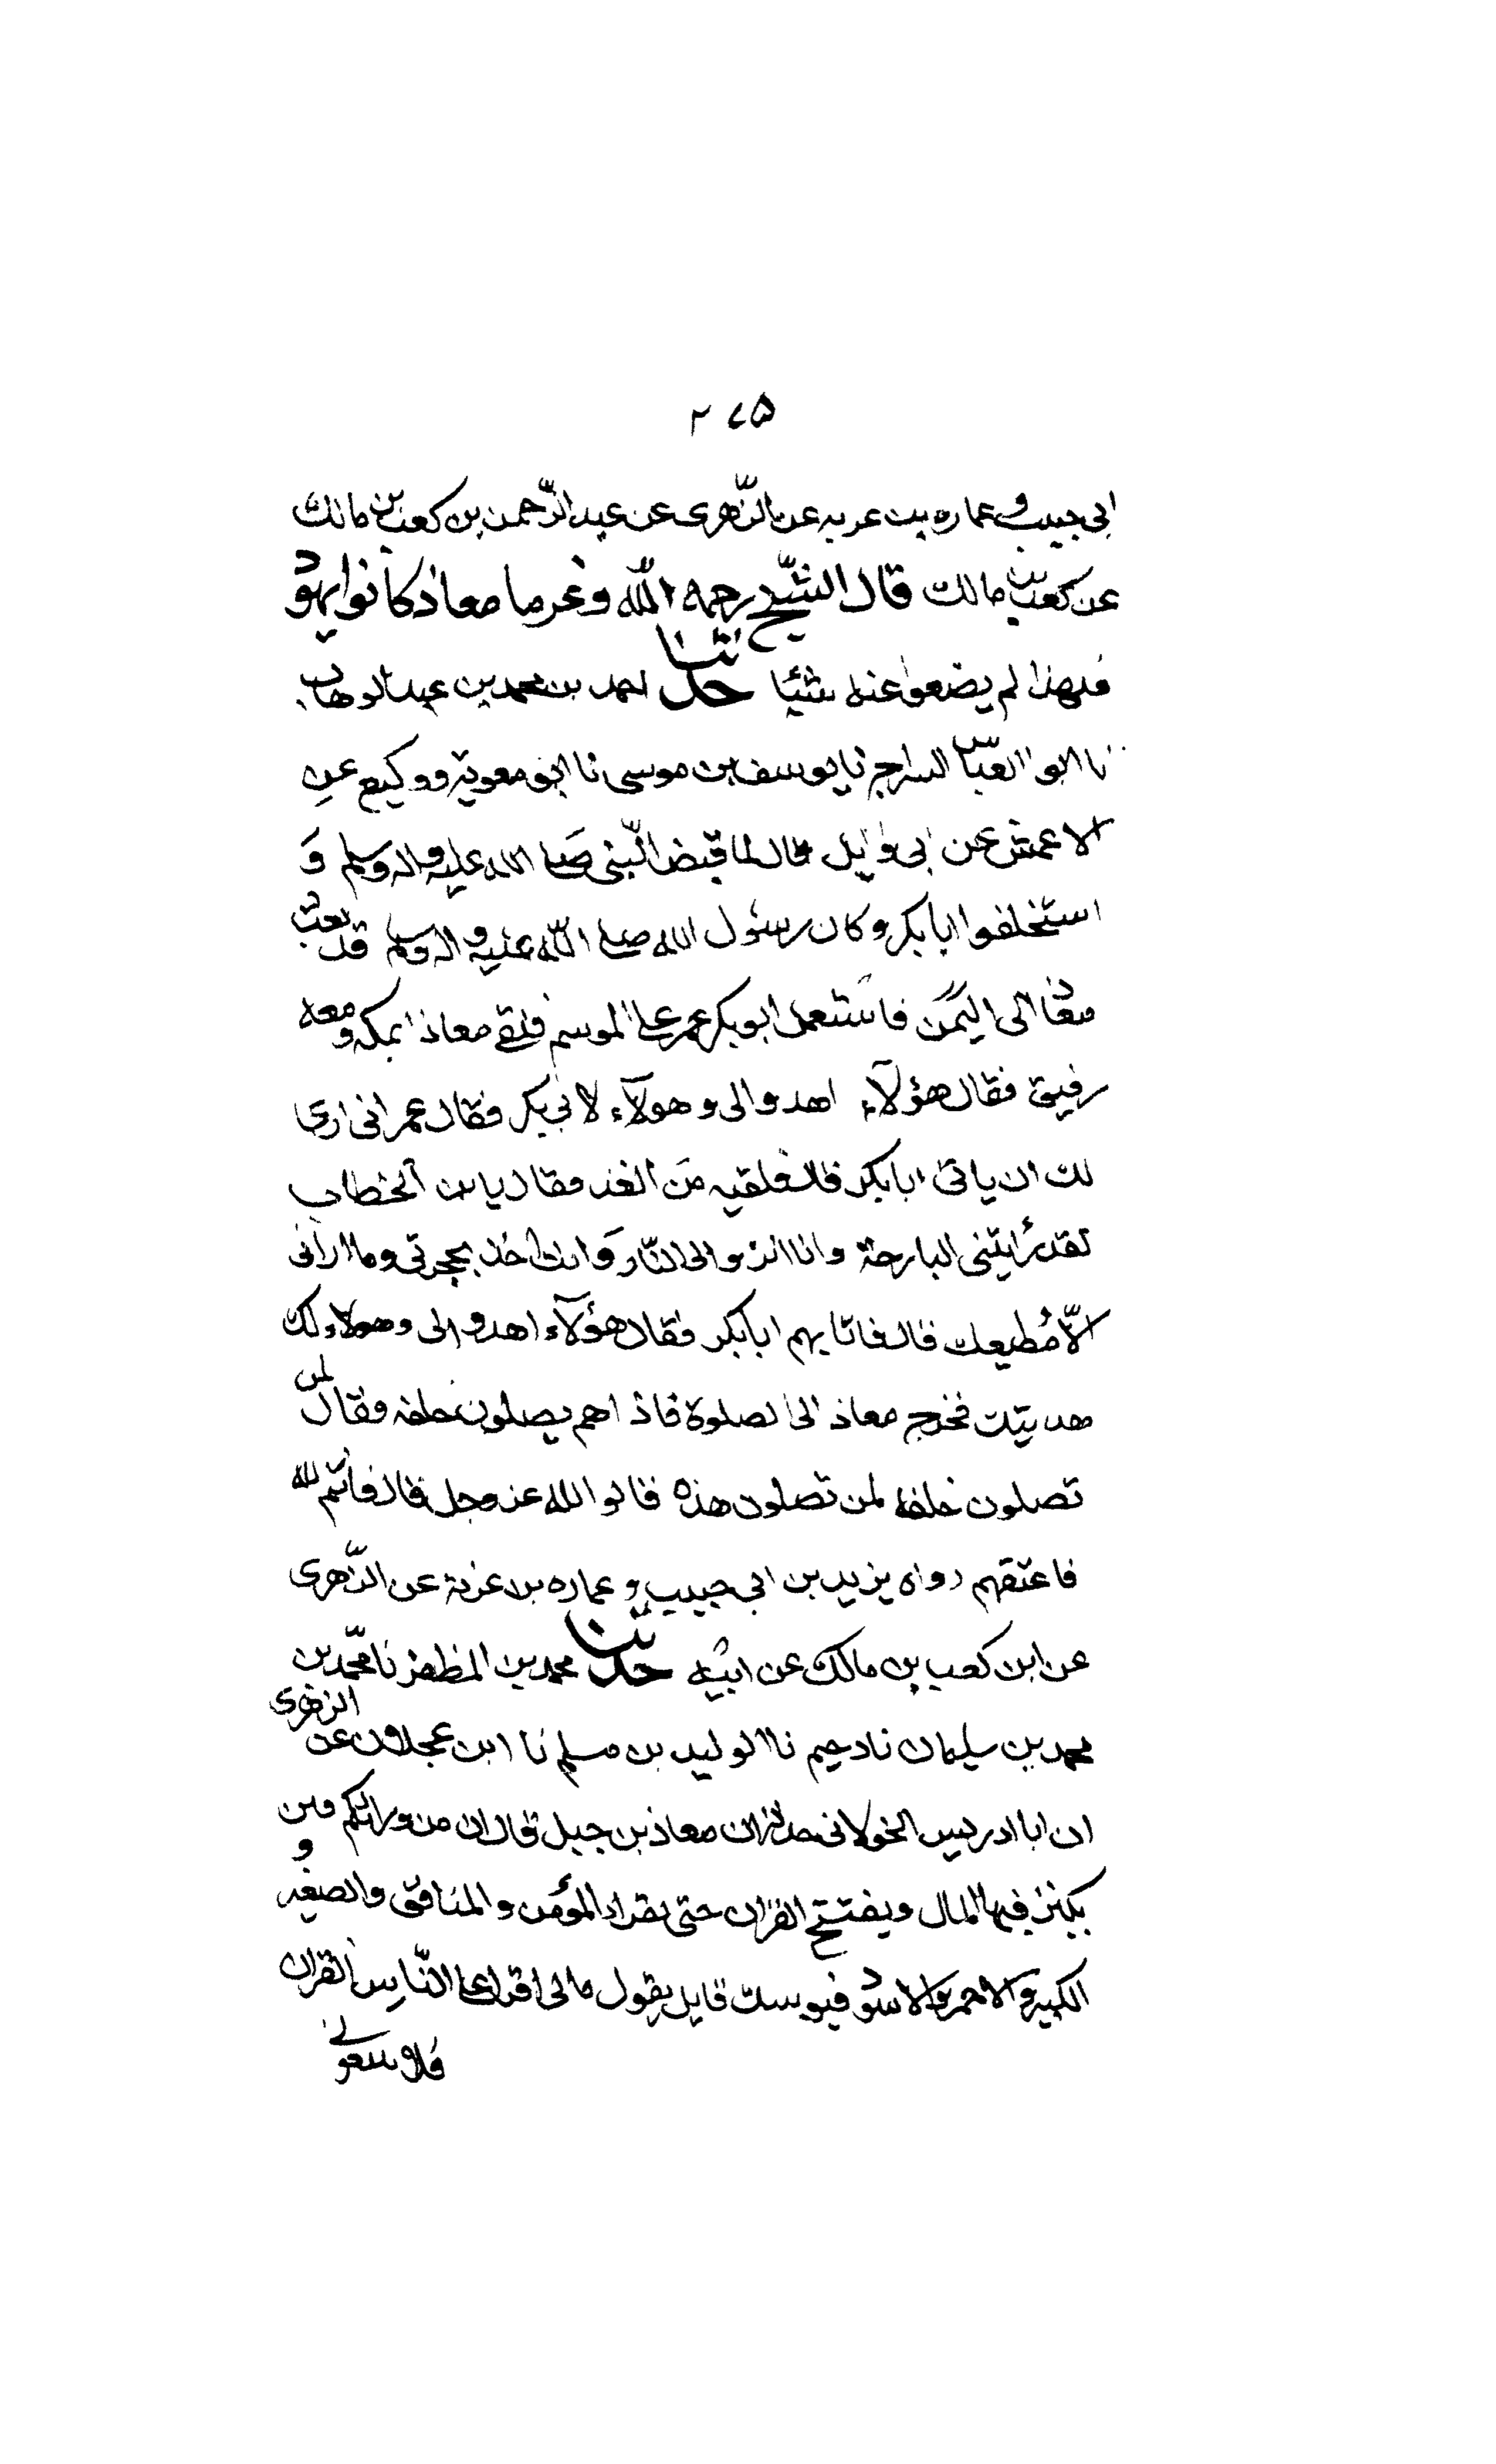 ٢٧۵
ابى حبيب و عماره بن عربه عن الزّهرى عن عبد الرّحمن بن كعب بن مالك
عن كعب بن مالك قال الشّيخ رحمه اللّه وغرما معاذ كانوا يهود
فلهذا لم يضعوا عنه شئيا حدثنا احمد بن محمد بن عبد الوهاب
نا ابو العبّاس السراج نا يوسف بن موسى نا ابو معوية ووكيع عن
الاعمش عن ابى وايل قال لما قبض النّبى صَلى الله عليه واله وسلم وَ
استخلفوا ابابكر وكان رسُول الله صلى اللّه عليه واله وسلم قد بعث
معاذا الى اليَمَن فاستعمل ابو بكر عمر على الموسم فلقى معاذا بمكه ومعه
رفيق فقال هؤلآء اهدوا لى وهولآء لابى بكر فقال عمر انى ارى
لك ان ياتى ابابكر قال فلقيه مَن الغد فقال يا بن الخطاب
لقد رُايتنى البارحة وانا انزو الى النّار وَانت اخذ بحجزتى وما ارانى
الاّ مُطيعك قال فاتا بهم ابابكر فقال هؤلآء اهدوا لى وهولاء لك
هديتك فخرج معاذ الى الصلوة فاذا هم يصلون خلفه فقال لمن
تصلون خلفه لمن تصلون هذه قالوا لله عز وجل قال فانتم لله
فاعتقهم رواه يزيد بن ابى حبيب و عماره بن غزية عن الزّهرى
عن ابن كعب بن مالك عن ابيه حدثنا محمد بن المظفر نا محمّد بن
محمد بن سليمان نا دحيم نا الوليد بن مسلم نا ابن عجلان عن الزهرى
ان ابا ادريس الخولانى حدثه ان معاذ بن جبل قال ان من ورائكم فتن
يكثر فيها المال ويفتتح القران حتى يقراه المؤمن والمنافق والصغير و
الكبير والاحمر والاسود فيوسك قايل يقول مالى اقرا على النّاس القران
فلا يتبعونى